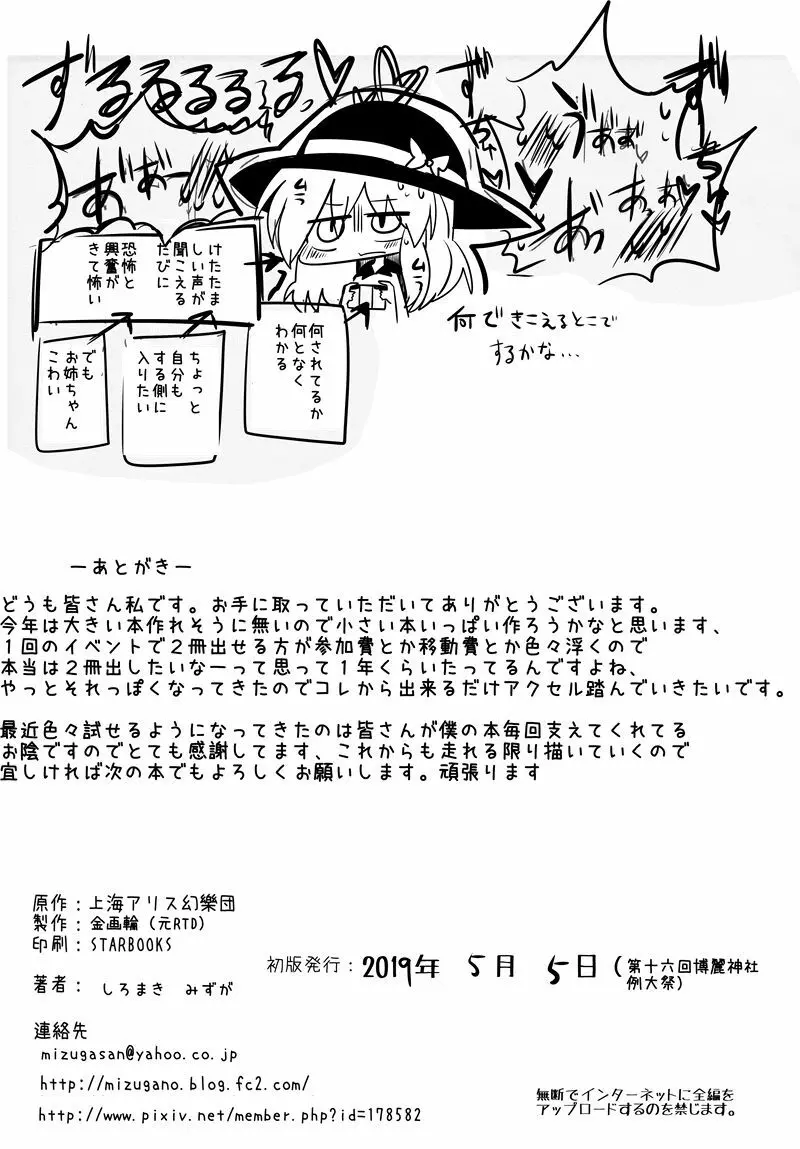 ずるるるるる、♡
ず
ぢゅ
ゔあ゛ーーーッ
ゔぁあ゛
けたたま
しい声が
聞こえる
たびに
恐怖と
興奮が
きて怖い
何されてるか
何となく
わかる
ちょっと
自分も
する側に
入りたい
でも
お姉ちゃん
こわい
何できこえるとこで
するかな…
ーあとがきー
どうも皆さん私です。お手に取っていただいてありがとうございます。
今年は大きい本作れそうに無いので小さい本いっぱい作ろうかなと思います、
1回のイベントで2冊出せる方が参加費とか移動費とか色々浮くので
本当は2冊出したいなーって思って1年くらいたってるんですよね、
やっとそれっぽくなってきたのでコレから出来るだけアクセル踏んでいきたいです。
最近色々試せるようになってきたのは皆さんが僕の本毎回支えてくれてる
お陰ですのでとても感謝してます、これからも走れる限り描いていくので
宜しければ次の本でもよろしくお願いします。頑張ります
原作：上海アリス幻樂団
製作：金画輪（元RTD）
印刷：STARBOOKS
著者： しろまき みずが
初版発行：2019年 5月 5日（第十六回博麗神社
例大祭）
連絡先
mizugasan@yahoo.co.jp
http://mizugano.blog.fc2.com/
http://www.pixiv.net/member.php?id=178582
無断でインターネットに全編を
アップロードするのを禁じます。